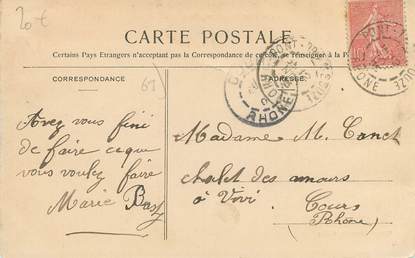 20€
CARTE POSTALE
Certains Pays Etrangers n'acceptant pas la Correspondance de ce côté, se renseigner à la Poste
CORRESPONDANCE
ADRESSE
69
RHONE
Avez vous fini
de faire ce que
vous voulez faire
Marie
Madame M. Canet
chalet des amours
à Vivi
Cours
(Rhône)